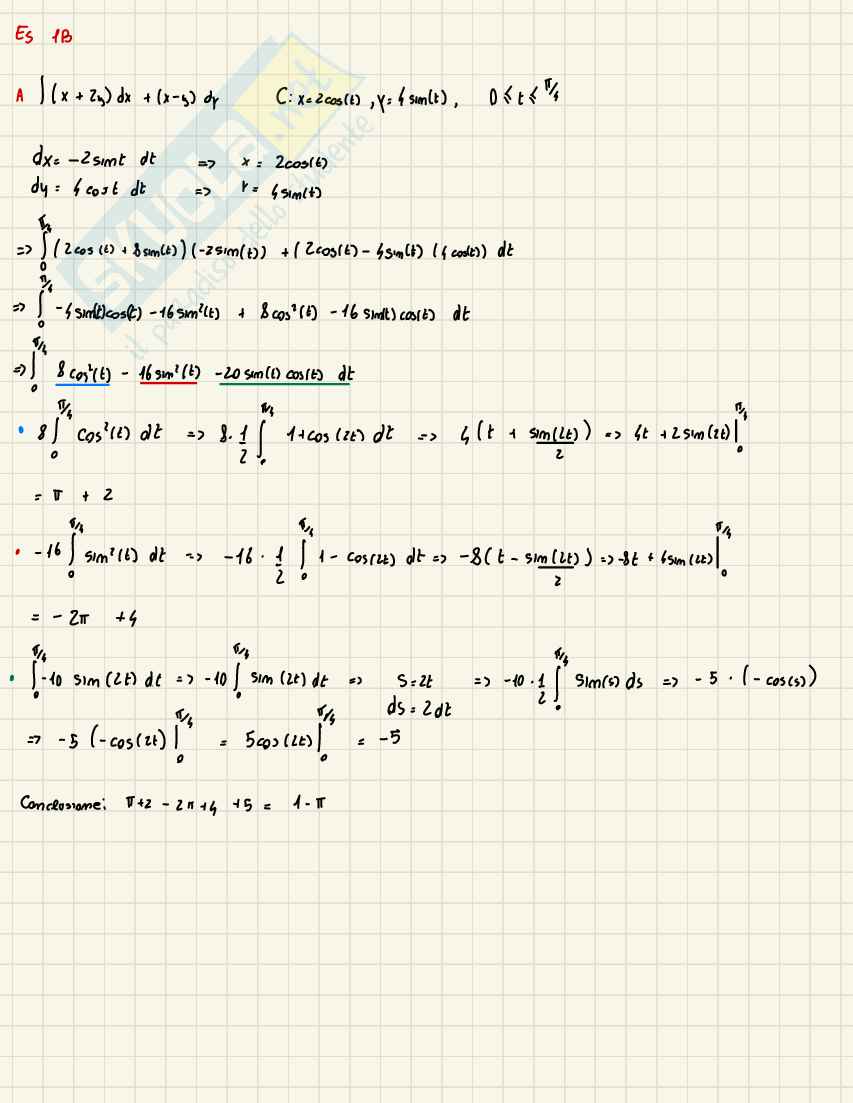 Es 1B
A ∫ (x + 2y) dx + (x-y) dy C: x = 2cos(t), y = 4 sin(t), 0 ≤ t ≤ π/4
dx = -2 sint dt => x = 2cos(t)
dy = 4 cost dt => y = 4sin(t)
=> ∫₀^π/4 (2cos(t) + 8sin(t))(-2sin(t)) + (2cos(t) - 4sin(t) (4cos(t)) dt
=> ∫₀^π/4 -4sin(t)cos(t) - 16sin²(t) + 8cos²(t) - 16 sin(t)cos(t) dt
=> ∫₀^π/4 8cos²(t) - 16sin²(t) -20 sin(t) cos(t) dt
• 8∫₀^π/4 cos²(t) dt => 8·1/2 ∫₀^π/4 1+cos(2t) dt => 4(t + sin(2t)/2) => 4t + 2sin(2t)|₀^π/4
= π + 2
• -16∫₀^π/4 sin²(t) dt => -16 · 1/2 ∫₀^π/4 1 - cos(2t) dt => -8(t - sin(2t)/2) => -8t + 4sin(2t)|₀^π/4
= -2π + 4
• ∫₀^π/4 -10 sin(2t) dt => -10∫₀^π/4 sin(2t) dt => s = 2t => -10·1/2 ∫₀^π/4 sin(s) ds => -5 · (-cos(s))
ds = 2dt
=> -5 (-cos(2t)|₀^π/4 = 5cos(2t)|₀^π/4 = -5
Conclusione: π+2 - 2π+4 +5 = 1-π
SKUOLA.net
il paradiso dello studente